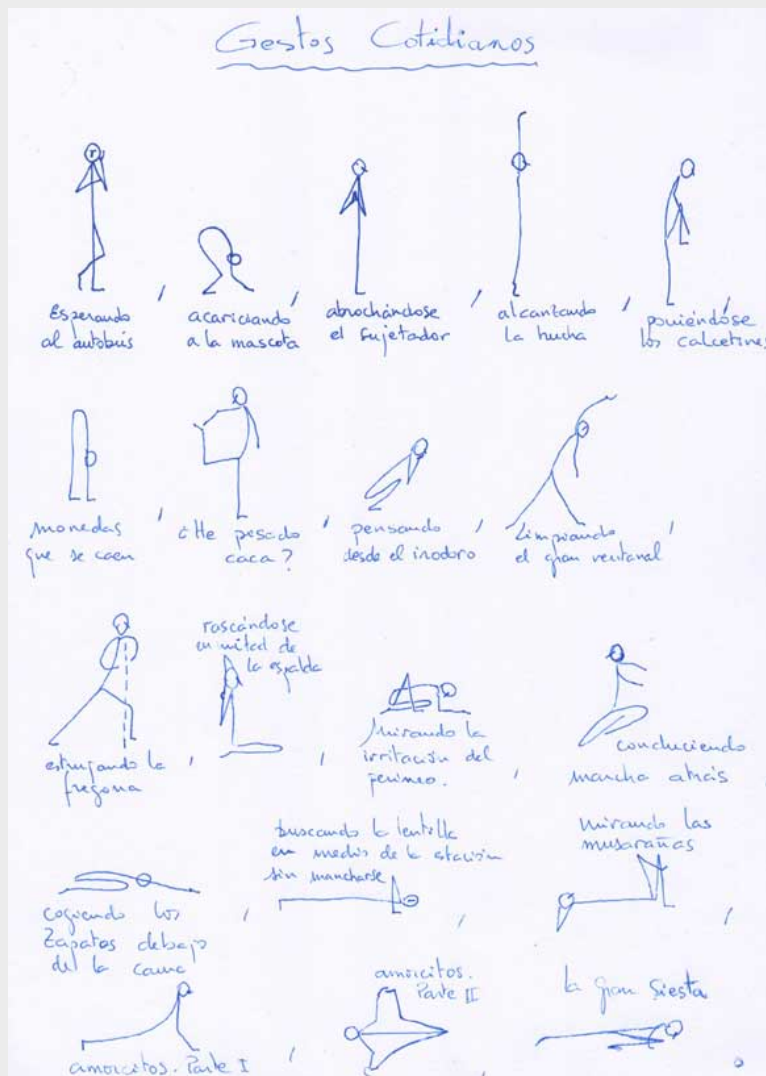 Gestos Cotidianos
Esperando
al autobús
,
acariciando
a la mascota
,
abrochándose
el sujetador
,
alcanzando
la hucha
,
poniéndose
los calcetines
,
monedas
que se caen
,
¿He pesado
caca?
,
pensando
desde el inodoro
,
Limpiando
el gran ventanal
,
estrujando la
fregona
,
rascándose
en mitad de
la espalda
,
mirando la
irritación del
perineo.
,
conduciendo
marcha atrás
cogiendo los
zapatos debajo
de la cama
,
buscando la lentilla
en medio de la estación
sin mancharse
,
mirando las
musarañas
,
amorcitos. Parte I
,
amorcitos.
Parte II
,
la gran siesta